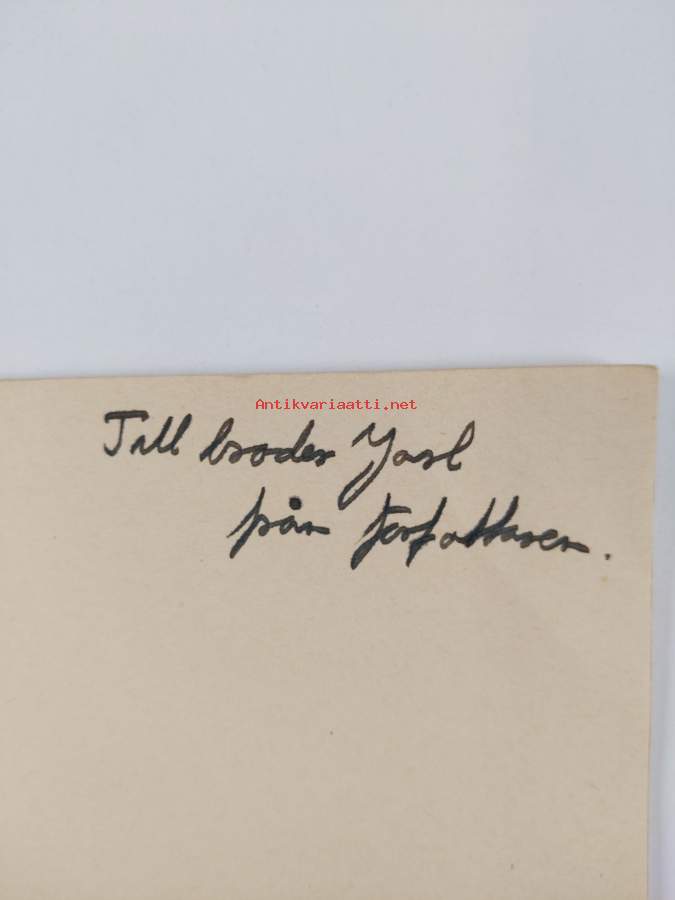 Antikvariaatti.net
Till broder Jarl
från författaren.